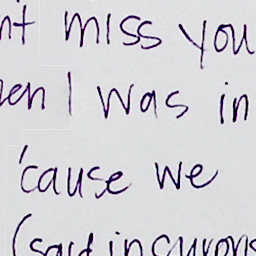 nt miss you
en I was in
'cause we
(said in